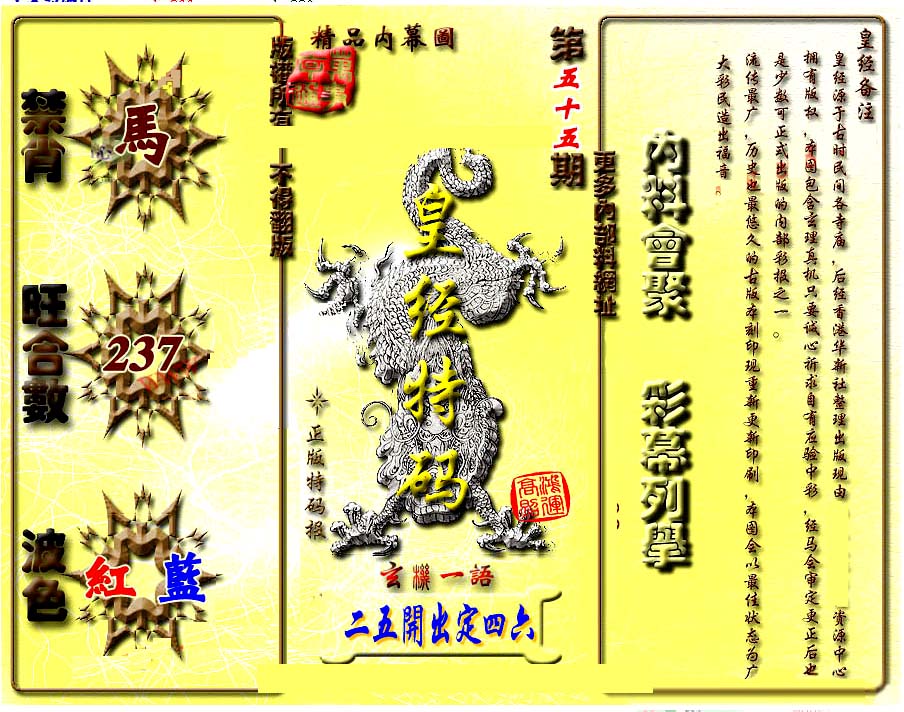 皇经备注
皇经源于古时民间各寺庙，后经香港华新社整理出版现由　资源中心
拥有版权，本图包含玄理真机只要诚心祈求自有应验中彩，经马会审定更正后也
是少数可正式出版的内部彩报之一。
流传最广，历史也最悠久的古版本刻印现重新更新印刷，本图会以最佳状态为广
大彩民造出福音
內料會聚
彩幕列舉
更多內部料網址
第五十五期
精品内幕圖
版權所有
不得翻版
皇经特码
正版特码报
鴻運
高照
玄機一語
二五開出定四六
禁肖
馬
旺合數
237
波色
紅
藍